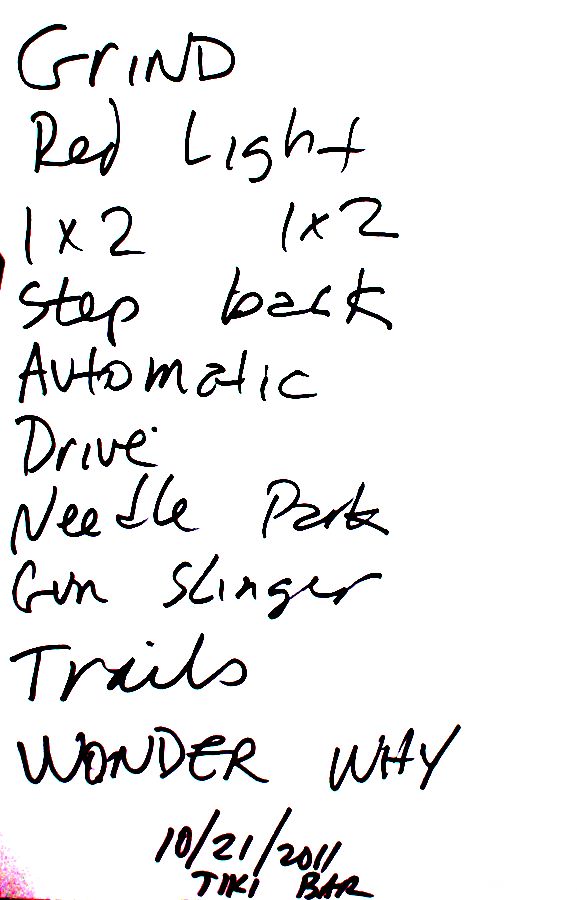 GRIND
Red Light
1x2 1x2
Step back
Automatic
Drive
Needle Park
Gun Slinger
Trails
WONDER WHY
10/21/2011
TIKI BAR